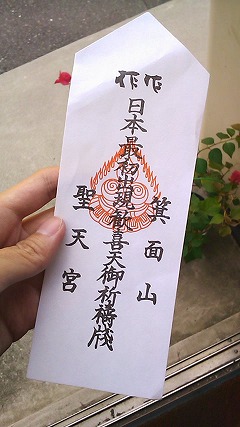 日本最初出現歓喜天御祈祷牘
箕面山
聖天宮